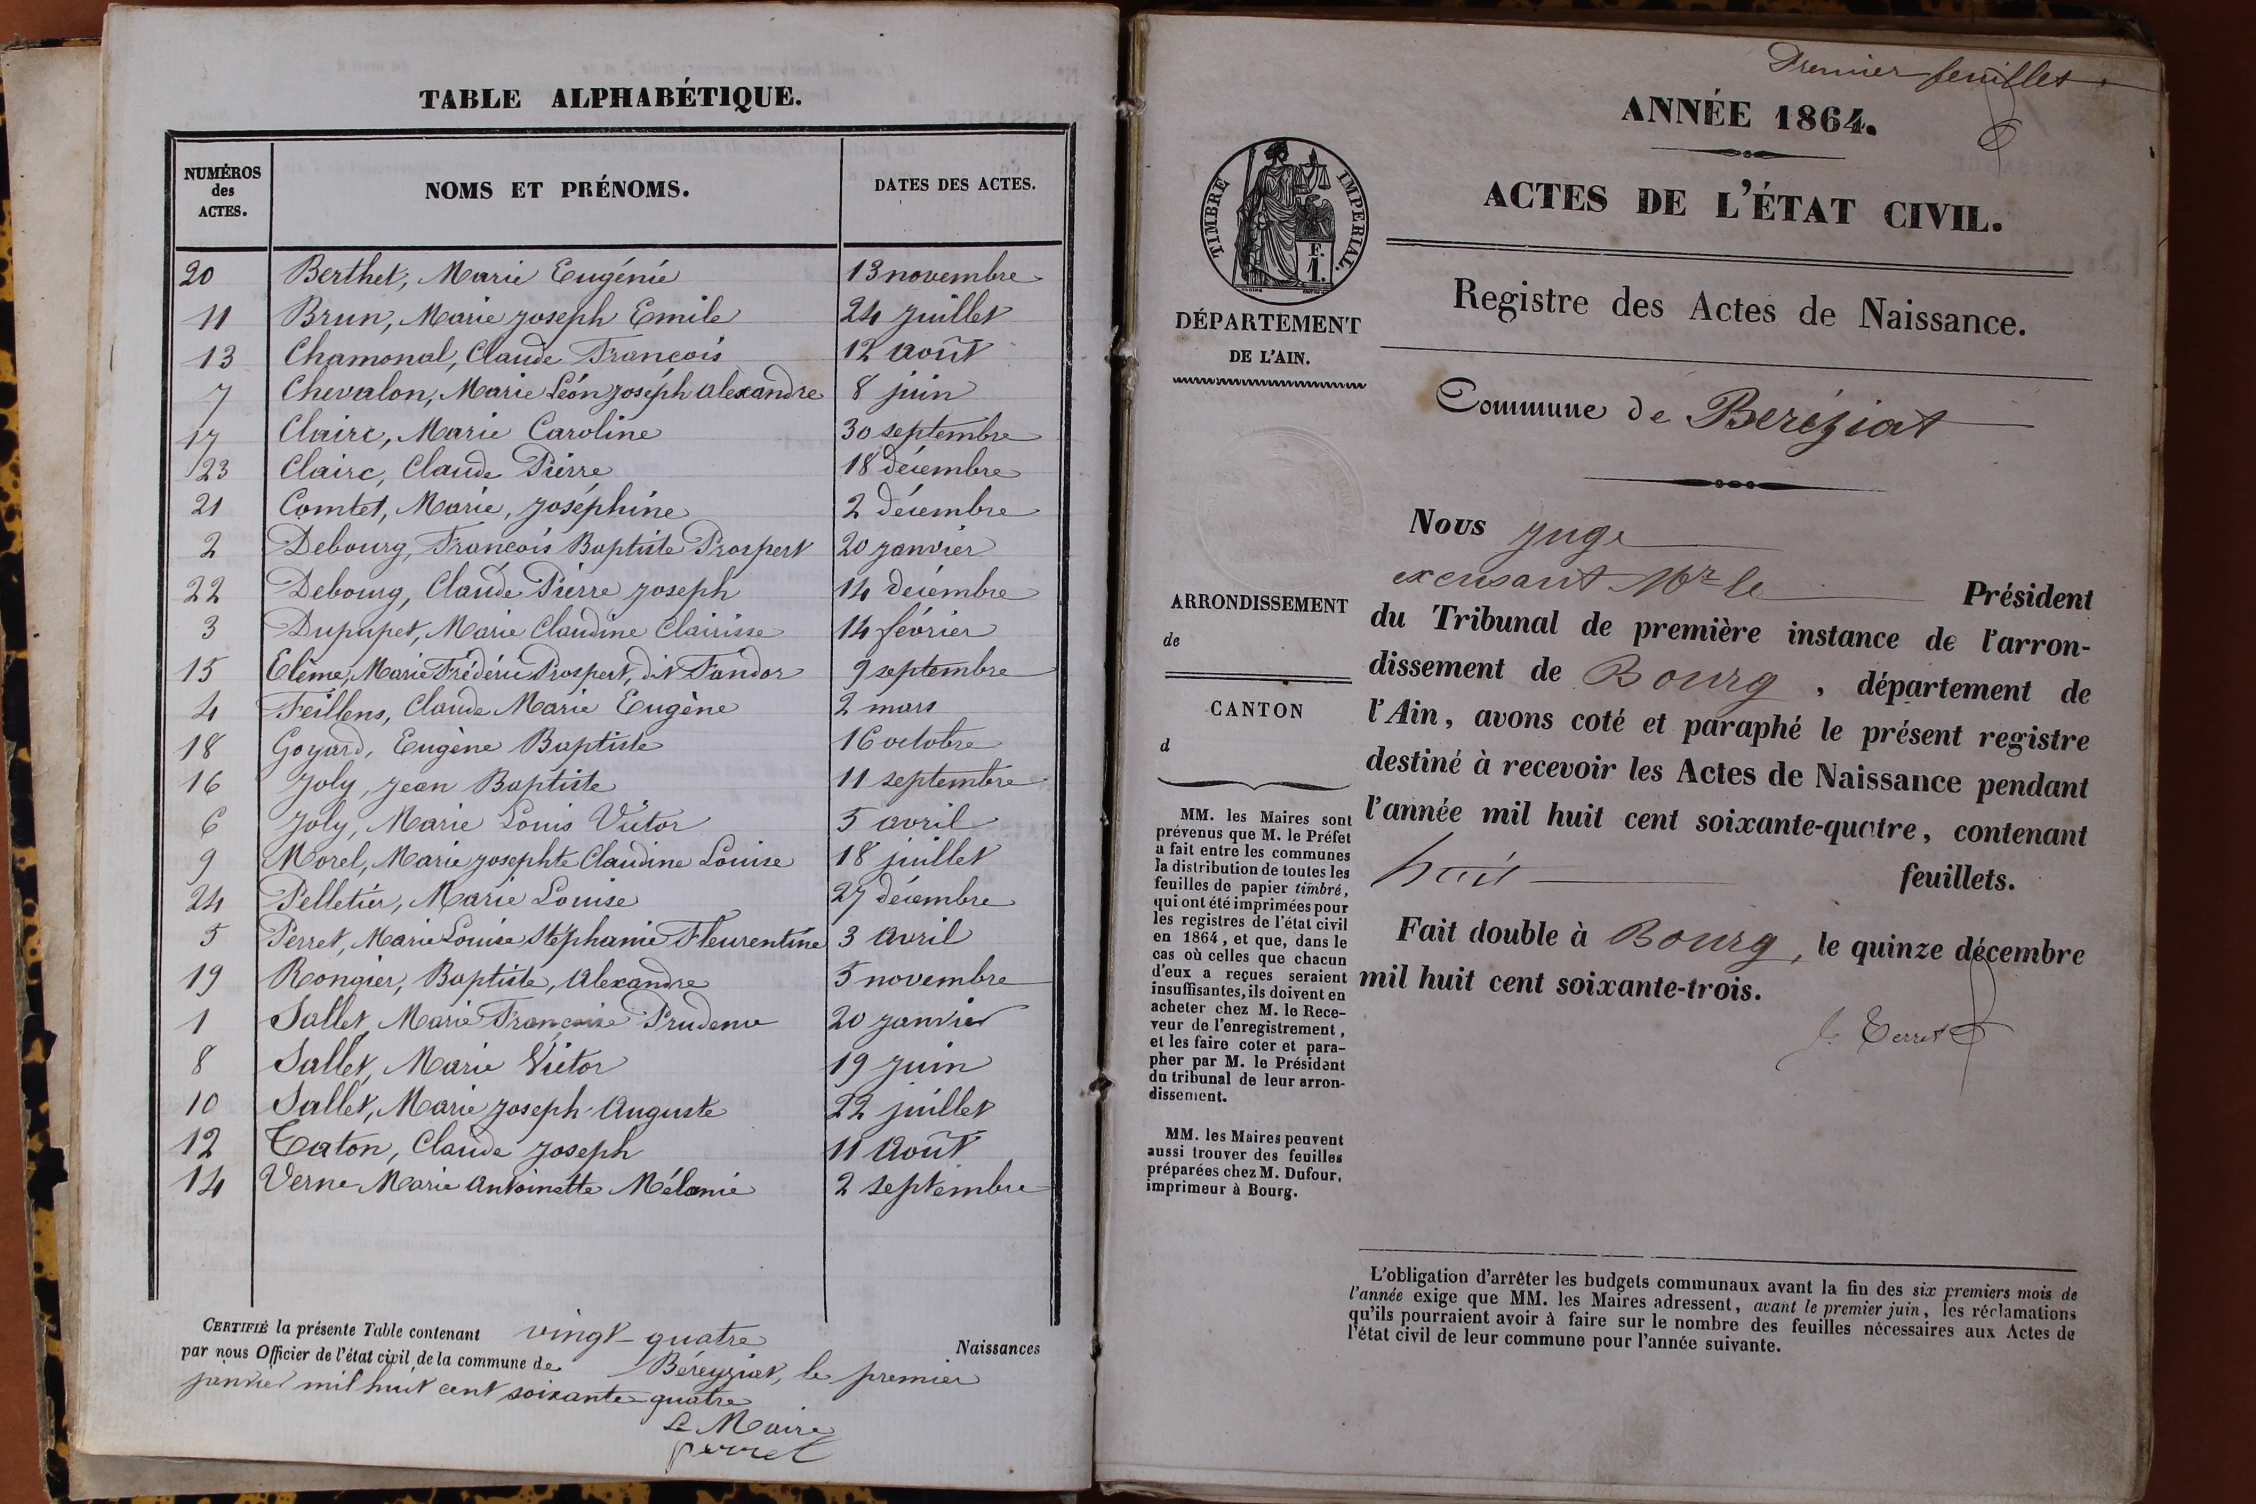 TABLE ALPHABÉTIQUE.
NUMÉROS des ACTES. NOMS ET PRÉNOMS. DATES DES ACTES.
20 Berthet, Marie Eugénie 13 novembre
11 Brun, Marie Joseph Emile 24 juillet
13 Chamonal, Claude François 12 Août
7 Chevalon, Marie Léon Joséph Alexandre 8 juin
17 Clairc, Marie Caroline 30 septembre
23 Clairc, Claude Pierre 18 décembre
21 Comtet, Marie, Joséphine 2 décembre
2 Debourg, François Baptiste Prospert 20 janvier
22 Debourg, Claude Pierre Joseph 14 décembre
3 Dupupet, Marie Claudine Clairisse 14 février
15 Elême, Marie Frédéric Prospert, dit Fandor 9 septembre
4 Feillens, Claude Marie Eugène 2 mars
18 Goyard, Eugène Baptiste 16 octobre
16 Joly, Jean Baptiste 11 septembre
6 Joly, Marie Louis Victor 5 avril
9 Morel, Marie Josephte Claudine Louise 18 juillet
24 Pelletier, Marie Louise 27 décembre
5 Perret, Marie Louise Stéphanie Fleurentine 3 Avril
19 Rongier, Baptiste, Alexandre 5 novembre
1 Sallet Marie Françoise Prudence 20 janvier
8 Sallet, Marie Victor 19 juin
10 Sallet, Marie Joseph Auguste 22 juillet
12 Taton, Claude Joseph 11 Août
14 Verne Marie Antoinette Mélanie 2 septembre
CERTIFIÉ la présente Table contenant vingt-quatre Naissances
par nous Officier de l'état civil de la commune de Béreyziat, le premier
janvier mil huit cent soixante-quatre
Le Maire
Perret
Premier feuillet
ANNÉE 1864.
ACTES DE L'ÉTAT CIVIL.
Registre des Actes de Naissance.
Commune de Béréziat
TIMBRE IMPERIAL.
F.
1.
DÉPARTEMENT
DE L'AIN.
ARRONDISSEMENT
de
CANTON
d
MM. les Maires sont
prévenus que M. le Préfet
a fait entre les communes
la distribution de toutes les
feuilles de papier timbré,
qui ont été imprimées pour
les registres de l'état civil
en 1864, et que, dans le
cas où celles que chacun
d'eux a reçues seraient
insuffisantes, ils doivent en
acheter chez M. le Rece-
veur de l'enregistrement,
et les faire coter et para-
pher par M. le Président
du tribunal de leur arron-
dissement.
MM. les Maires peuvent
aussi trouver des feuilles
préparées chez M. Dufour,
imprimeur à Bourg.
Nous Juge
excusant Mr le Président
du Tribunal de première instance de l'arron-
dissement de Bourg, département de
l'Ain, avons coté et paraphé le présent registre
destiné à recevoir les Actes de Naissance pendant
l'année mil huit cent soixante-quatre, contenant
huit feuillets.
Fait double à Bourg, le quinze décembre
mil huit cent soixante-trois.
L'obligation d'arrêter les budgets communaux avant la fin des six premiers mois de
l'année exige que MM. les Maires adressent, avant le premier juin, les réclamations
qu'ils pourraient avoir à faire sur le nombre des feuilles nécessaires aux Actes de
l'état civil de leur commune pour l'année suivante.